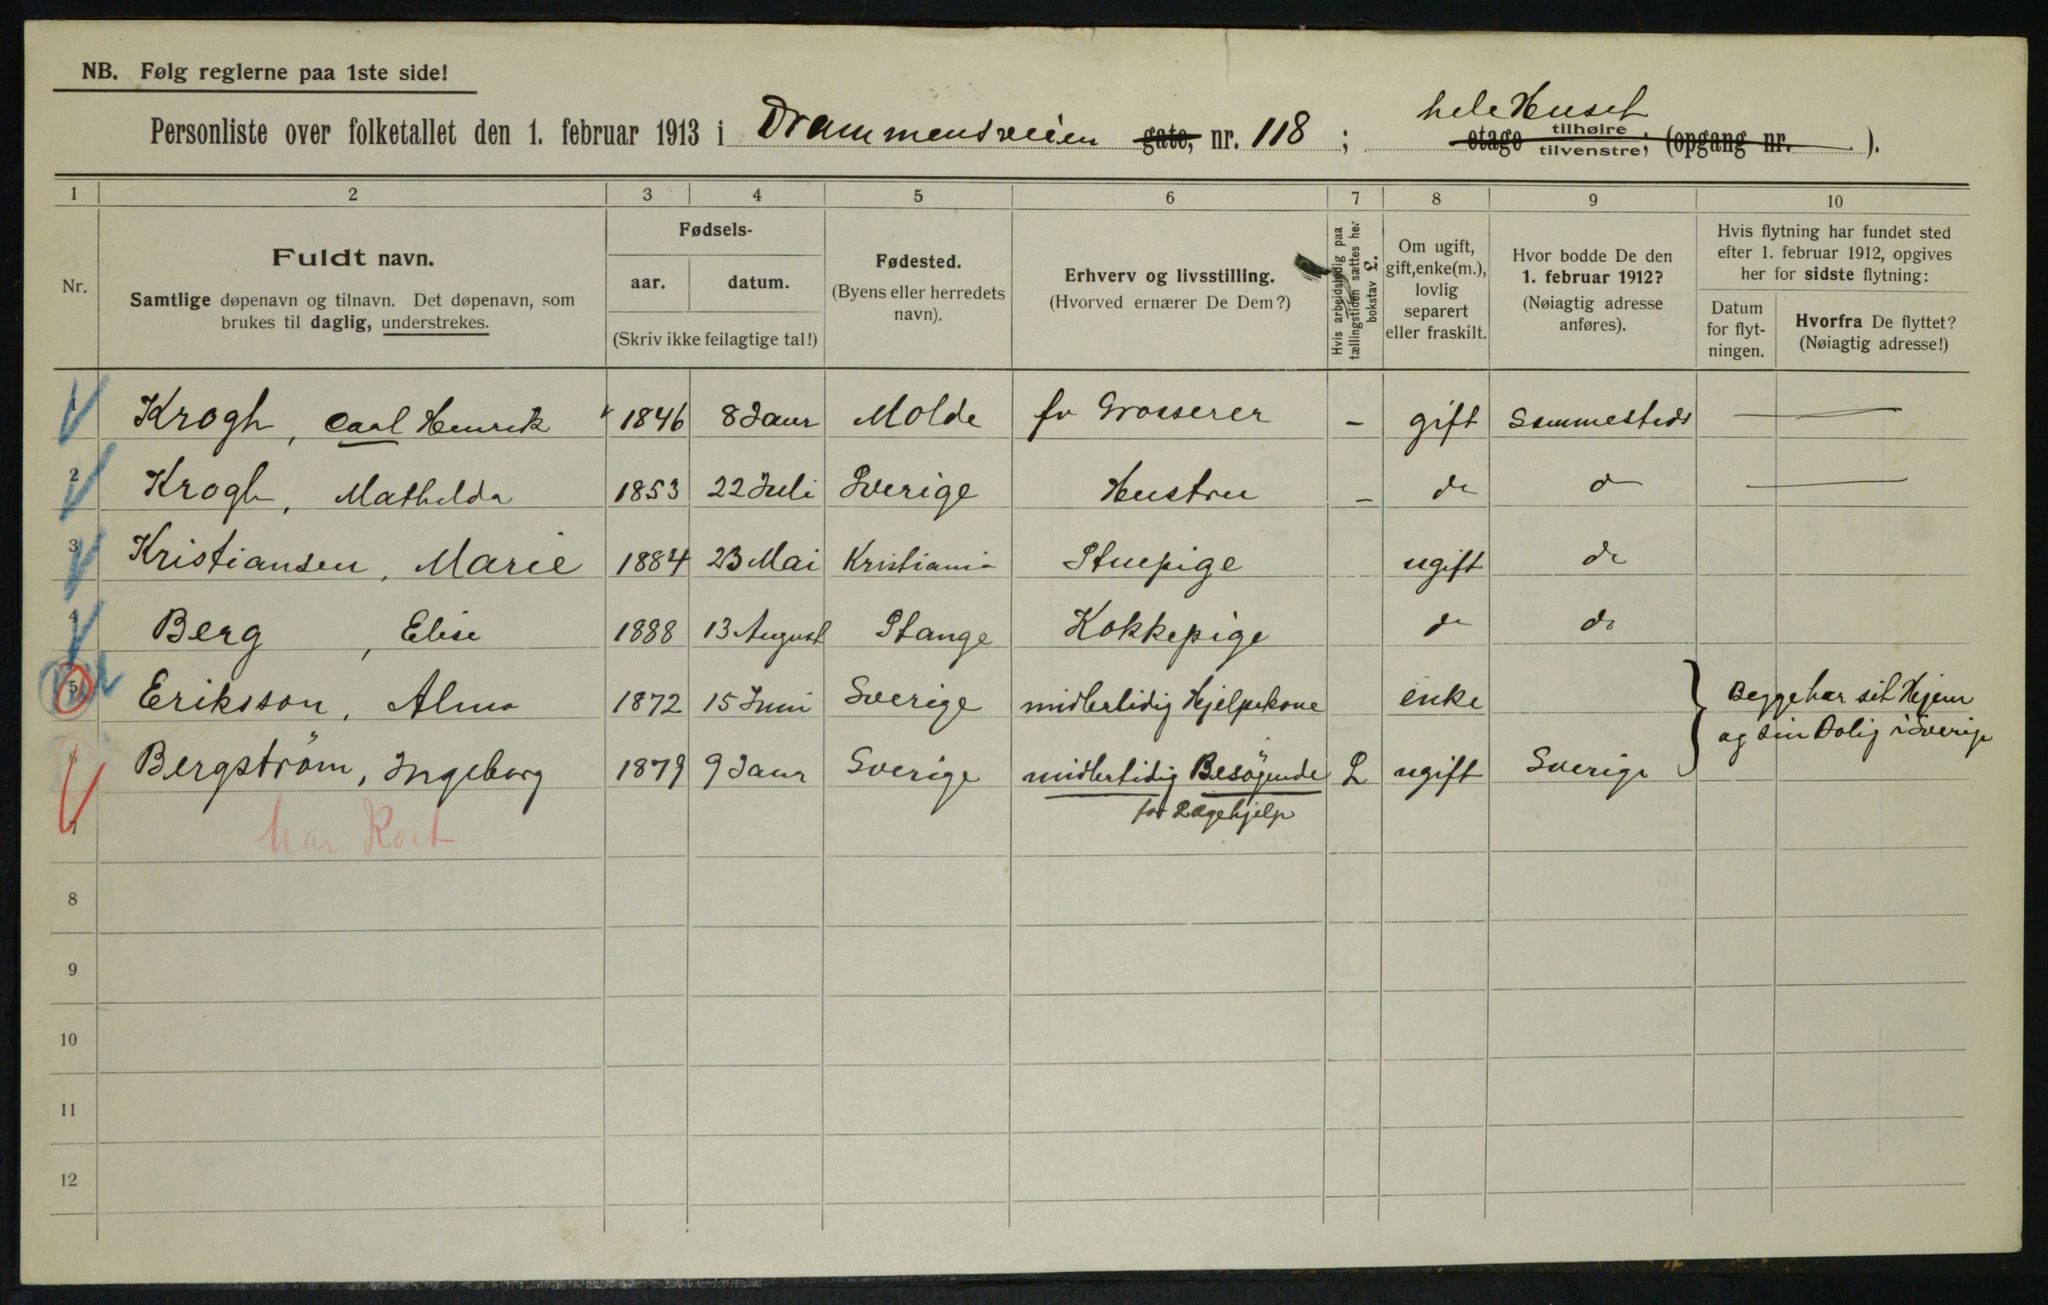 NB. Følg reglerne paa 1ste side!
hele Huset
Personliste over folketallet den 1. februar 1913 i Drammensveien gate, nr. 118 ; etage tilhøire tilvenstre, (opgang nr. ).
1 2 3 4 5 6 7 8 9 10
Nr.
Fuldt navn.
Samtlige døpenavn og tilnavn. Det døpenavn, som
brukes til daglig, understrekes.
Fødsels-
aar. datum.
(Skriv ikke feilagtige tal!)
Fødested.
(Byens eller herredets
navn).
Erhverv og livsstilling.
(Hvorved ernærer De Dem?)
Hvis arbeidsledig paa
tællingstiden sættes her
bokstav L.
Om ugift,
gift, enke(m.),
lovlig
separert
eller fraskilt.
Hvor bodde De den
1. februar 1912?
(Nøiagtig adresse
anføres).
Hvis flytning har fundet sted
efter 1. februar 1912, opgives
her for sidste flytning:
Datum
for flyt-
ningen.
Hvorfra De flyttet?
(Nøiagtig adresse!)
1 Krogh, Carl Henrik 1846 8 Januar Molde fv Grosserer – gift Sammesteds —
2 Krogh, Mathilda 1853 22 Juli Sverige Hustru – do do —
3 Kristiansen, Marie 1884 23 Mai Kristiania Stuepige ugift do
4 Berg, Elise 1888 13 August Stange Kokkepige do do
5 Eriksson, Alma 1872 15 Juni Sverige midlertidig Hjelpekone enke Begge har sit Hjem
og sin Bolig i Sverige
Bergström, Ingeborg 1879 9 Januar Sverige midlertidig Besögende L ugift Sverige
for Lægehjelp
7 har Kort
8
9
10
11
12